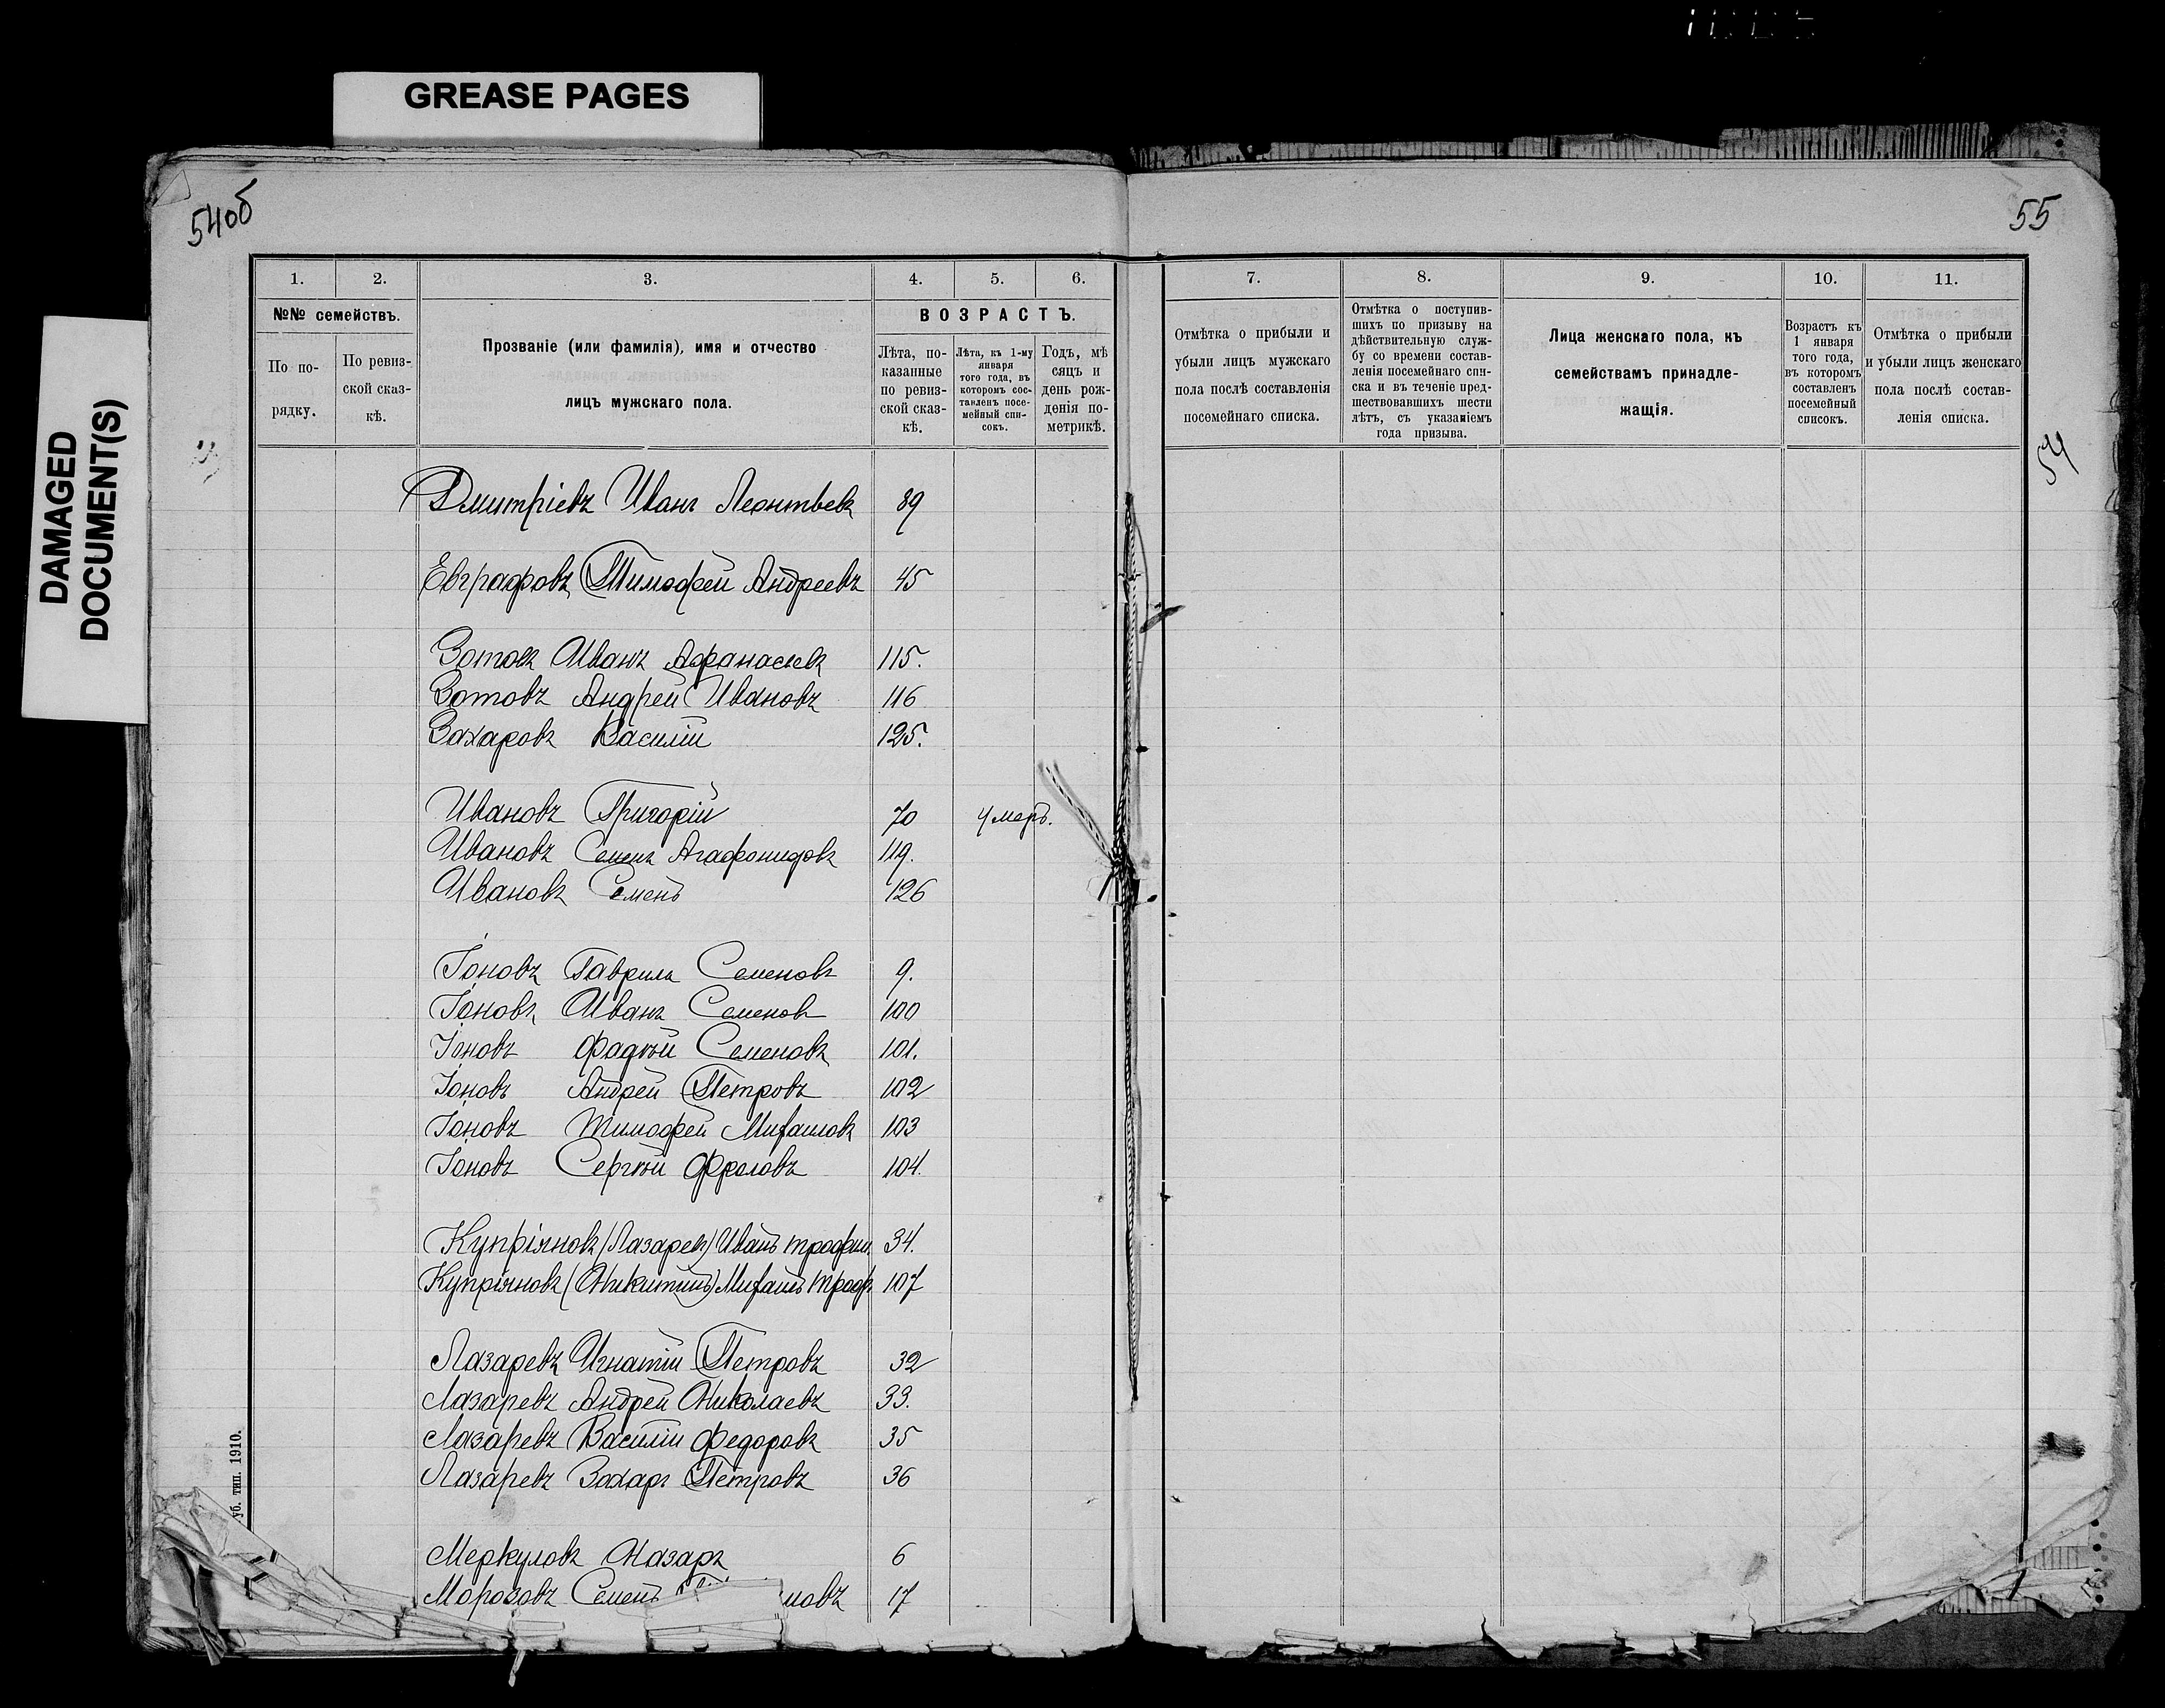 GREASE PAGES
DAMAGED
DOCUMENT(S)
54об
55
54
1. 2. 3. 4. 5. 6.
№№ семействъ.
По по-
рядку.
По ревиз-
ской сказ-
кѣ.
Прозваніе (или фамилія), имя и отчество
лицъ мужскаго пола.
ВОЗРАСТЪ.
Лѣта, по-
казанные
по ревиз-
ской сказ-
кѣ.
Лѣта, къ 1-му
января
того года, въ
которомъ сос-
тавленъ посе-
мейный спи-
сокъ.
Годъ, мѣ
сяцъ и
день рож-
денія по-
метрикѣ.
7. 8. 9. 10. 11.
Отмѣтка о прибыли и
убыли лицъ мужскаго
пола послѣ составленія
посемейнаго списка.
Отмѣтка о поступив-
шихъ по призыву на
дѣйствительную служ-
бу со времени состав-
ленія посемейнаго спи-
ска и въ теченіе пред-
шествовавшихъ шести
лѣтъ, съ указаніемъ
года призыва.
Лица женскаго пола, къ
семействамъ принадле-
жащія.
Возрастъ къ
1 января
того года,
въ которомъ
составленъ
посемейный
списокъ.
Отмѣтка о прибыли
и убыли лицъ женскаго
пола послѣ состав-
ленія списка.
Дмитріевъ Иванъ Леонтьевъ 89
Евграфовъ Тимофей Андреевъ 45
Зотовъ Иванъ Афанасьевъ 115.
Зотовъ Андрей Ивановъ 116
Захаровъ Василій 125.
Ивановъ Григорій 70 умеръ.
Ивановъ Семенъ Агафонидовъ 119.
Ивановъ Семенъ 126
Іоновъ Гаврила Семеновъ 9.
Іоновъ Иванъ Семеновъ 100
Іоновъ Фадѣй Семеновъ 101.
Іоновъ Андрей Петровъ 102
Іоновъ Тимофей Михайловъ 103
Іоновъ Сергѣй Фроловъ 104.
Купріяновъ (Лазаревъ) Иванъ Трофим. 34.
Купріяновъ (Никитинъ) Михаилъ Троф. 107
Лазаревъ Игнатій Петровъ 32
Лазаревъ Андрей Николаевъ 33.
Лазаревъ Василій Федоровъ 35
Лазаревъ Захаръ Петровъ 36
Меркуловъ Назаръ 6
Морозовъ Семенъ новъ 17
уб. тип. 1910.